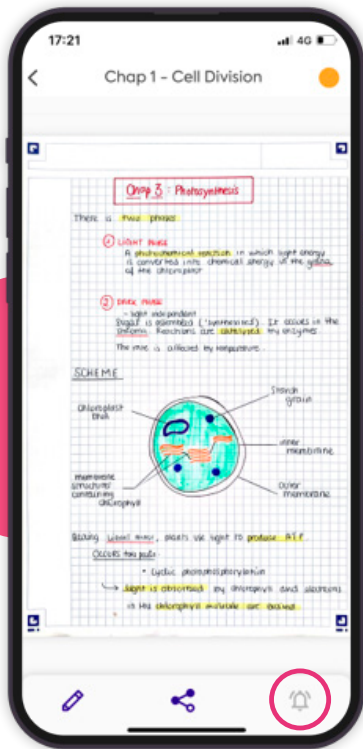 17:21 4G
Chap 1 - Cell Division
Chap 3 : Photosynthesis
There is two phases
① LIGHT PHASE
A photochemical reaction in which light energy
is converted into chemical energy in the grana
of the chloroplast
② DARK PHASE
- light independent
Sugar is assembled ("synthesized"). It occurs in the
stroma. Reactions are catalysed by enzymes.
The rate is affected by temperature.
SCHEME
Starch
grain
Chloroplast
DNA
inner
membrane
membrane
structures
containing
chlorophyll
Outer
membrane
During light, plants use light to produce ATP.
Occurs two
• Cyclic photophosphorylation
Light is absorbed by chlorophyll and electrons
in the chlorophyll molecule are excited